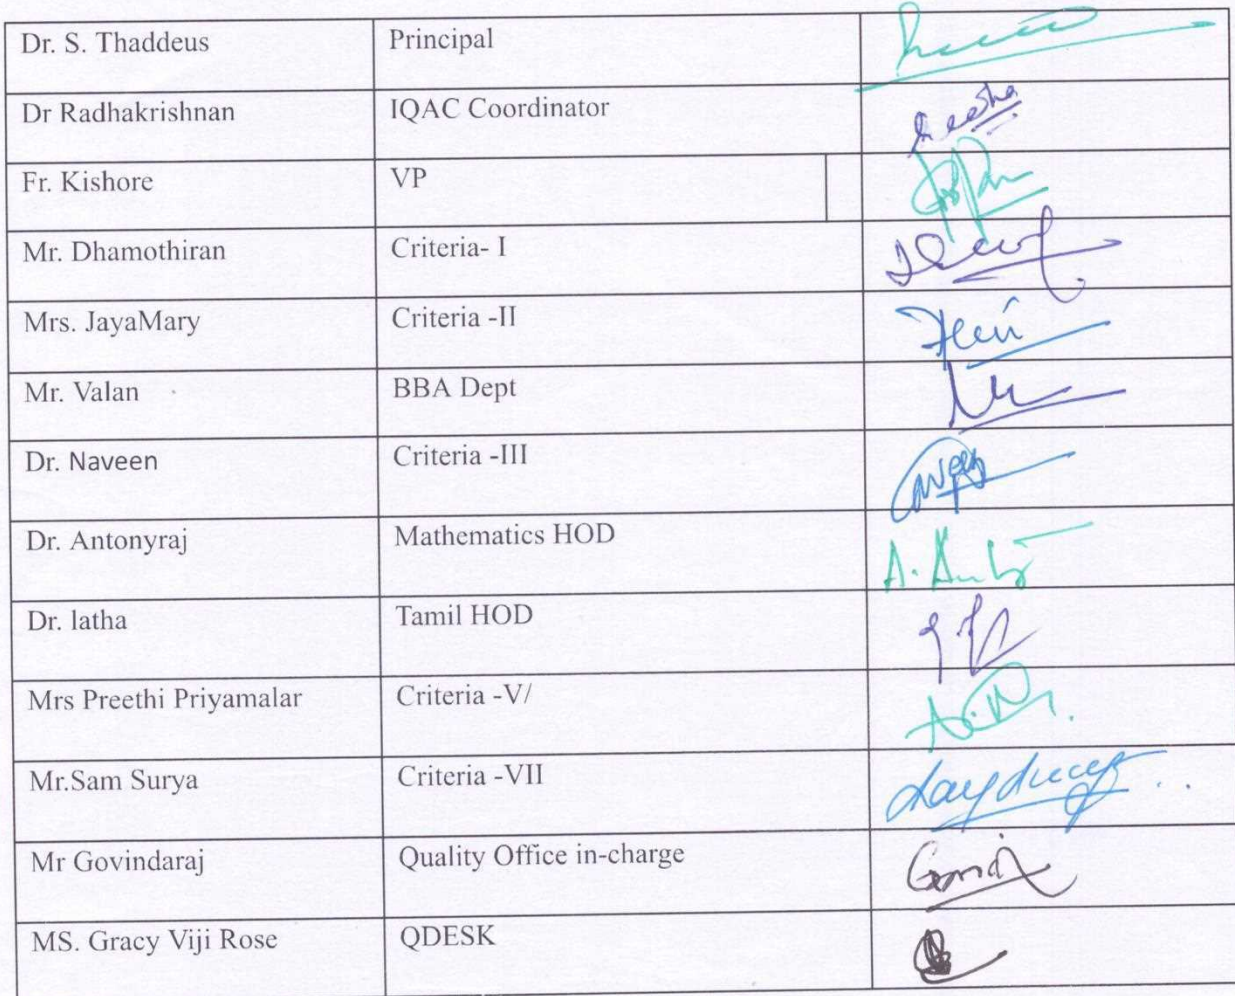 Dr. S. Thaddeus Principal
Dr Radhakrishnan IQAC Coordinator
Fr. Kishore VP
Mr. Dhamothiran Criteria- I
Mrs. JayaMary Criteria -II
Mr. Valan BBA Dept
Dr. Naveen Criteria -III
Dr. Antonyraj Mathematics HOD
Dr. latha Tamil HOD
Mrs Preethi Priyamalar Criteria -V/
Mr.Sam Surya Criteria -VII
Mr Govindaraj Quality Office in-charge
MS. Gracy Viji Rose QDESK